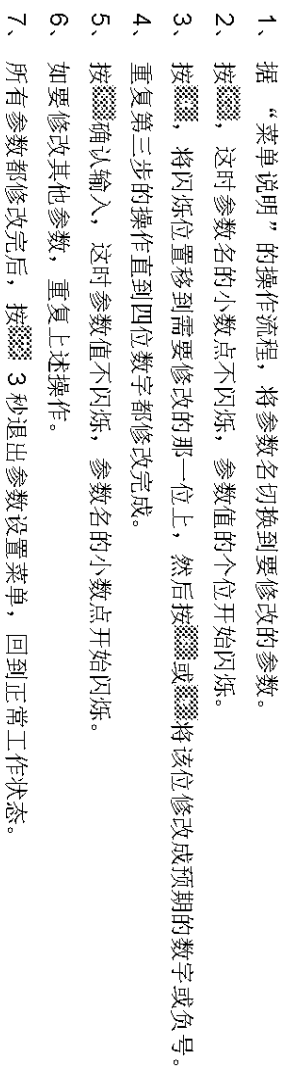 1、据“菜单说明”的操作流程，将参数名切换到要修改的参数。
2、按，这时参数名的小数点不闪烁，参数值的个位开始闪烁。
3、按，将闪烁位置移到需要修改的那一位上，然后按或将该位修改成预期的数字或负号。
4、重复第三步的操作直到四位数字都修改完成。
5、按确认输入，这时参数值不闪烁，参数名的小数点开始闪烁。
6、如要修改其他参数，重复上述操作。
7、所有参数都修改完后，按3秒退出参数设置菜单，回到正常工作状态。